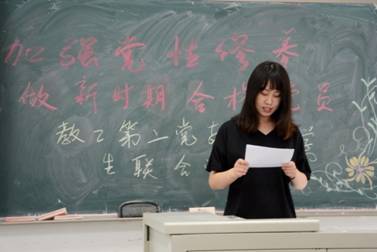 加强党性修养
做新时期合格党员
教工第一党支 学
生联合